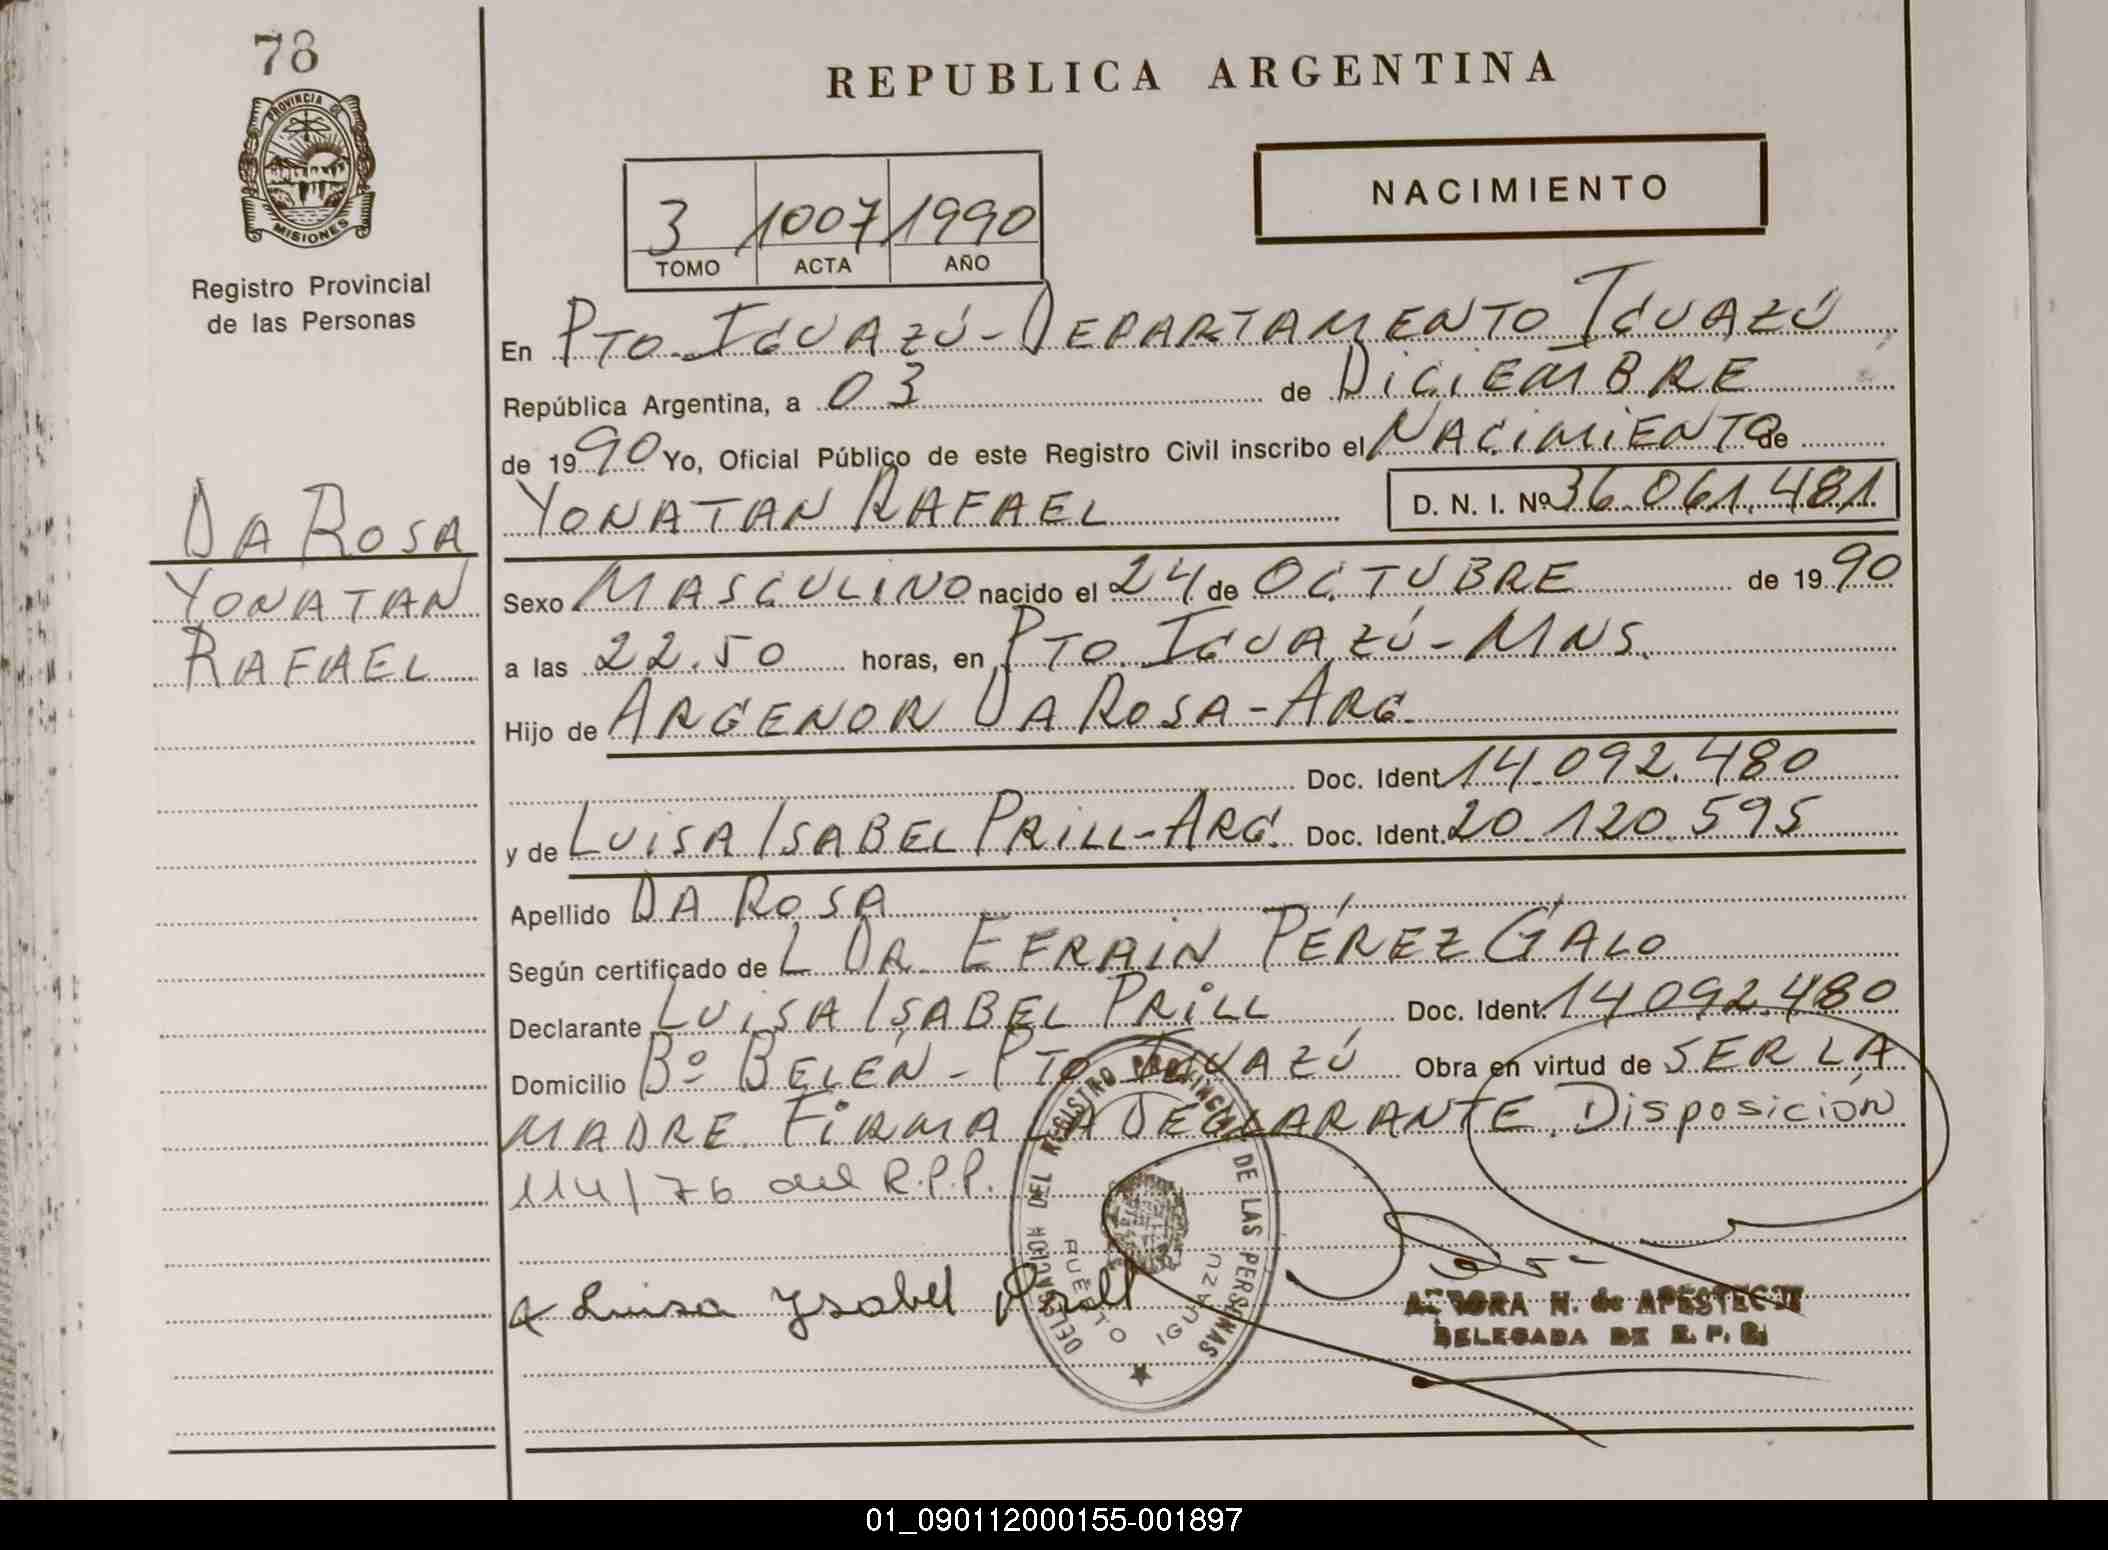 78
PROVINCIA DE
MISIONES
Registro Provincial
de las Personas
DA ROSA
YONATAN
RAFAEL
REPUBLICA ARGENTINA
NACIMIENTO
3 1007 1990
TOMO ACTA AÑO
En PTO. IGUAZÚ - DEPARTAMENTO IGUAZÚ
República Argentina, a 03 de DICIEMBRE
de 1990 Yo, Oficial Público de este Registro Civil inscribo el NACIMIENTO de
YONATAN RAFAEL D. N. I. Nº 36.061.481
Sexo MASCULINO nacido el 24 de OCTUBRE de 1990
a las 22.50 horas, en PTO. IGUAZÚ - MNS.
Hijo de ARGENOR DA ROSA - ARG.
Doc. Ident. 14.092.480
y de LUISA ISABEL PRILL - ARG. Doc. Ident. 20.120.595
Apellido DA ROSA
Según certificado de L DR. EFRAIN PÉREZ GALO
Declarante LUISA ISABEL PRILL Doc. Ident. 14.092.480
Domicilio Bº BELÉN - PTO. IGUAZÚ Obra en virtud de SER LA
MADRE. FIRMA LA DECLARANTE. Disposición
114/76 del R.P.P.
Luisa Ysabel Prill
DELEGACION DEL REGISTRO PROVINCIAL DE LAS PERSONAS
PUERTO IGUAZU
AURORA N. de APESTEGUI
DELEGADA DE R. P. P.
01_090112000155-001897